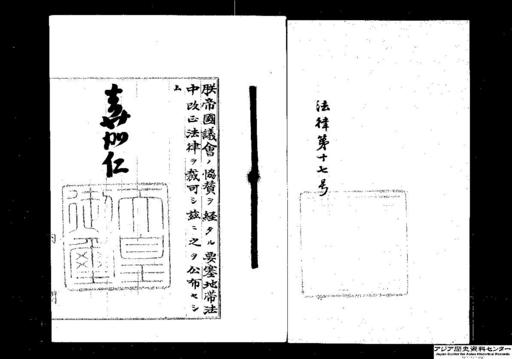 法律第十七号
朕帝國議會ノ協賛ヲ経タル要塞地帯法
中改正法律ヲ裁可シ茲ニ之ヲ公布セシ
ム
嘉仁
天皇
御璽
アジア歴史資料センター
Japan Center for Asian Historical Records